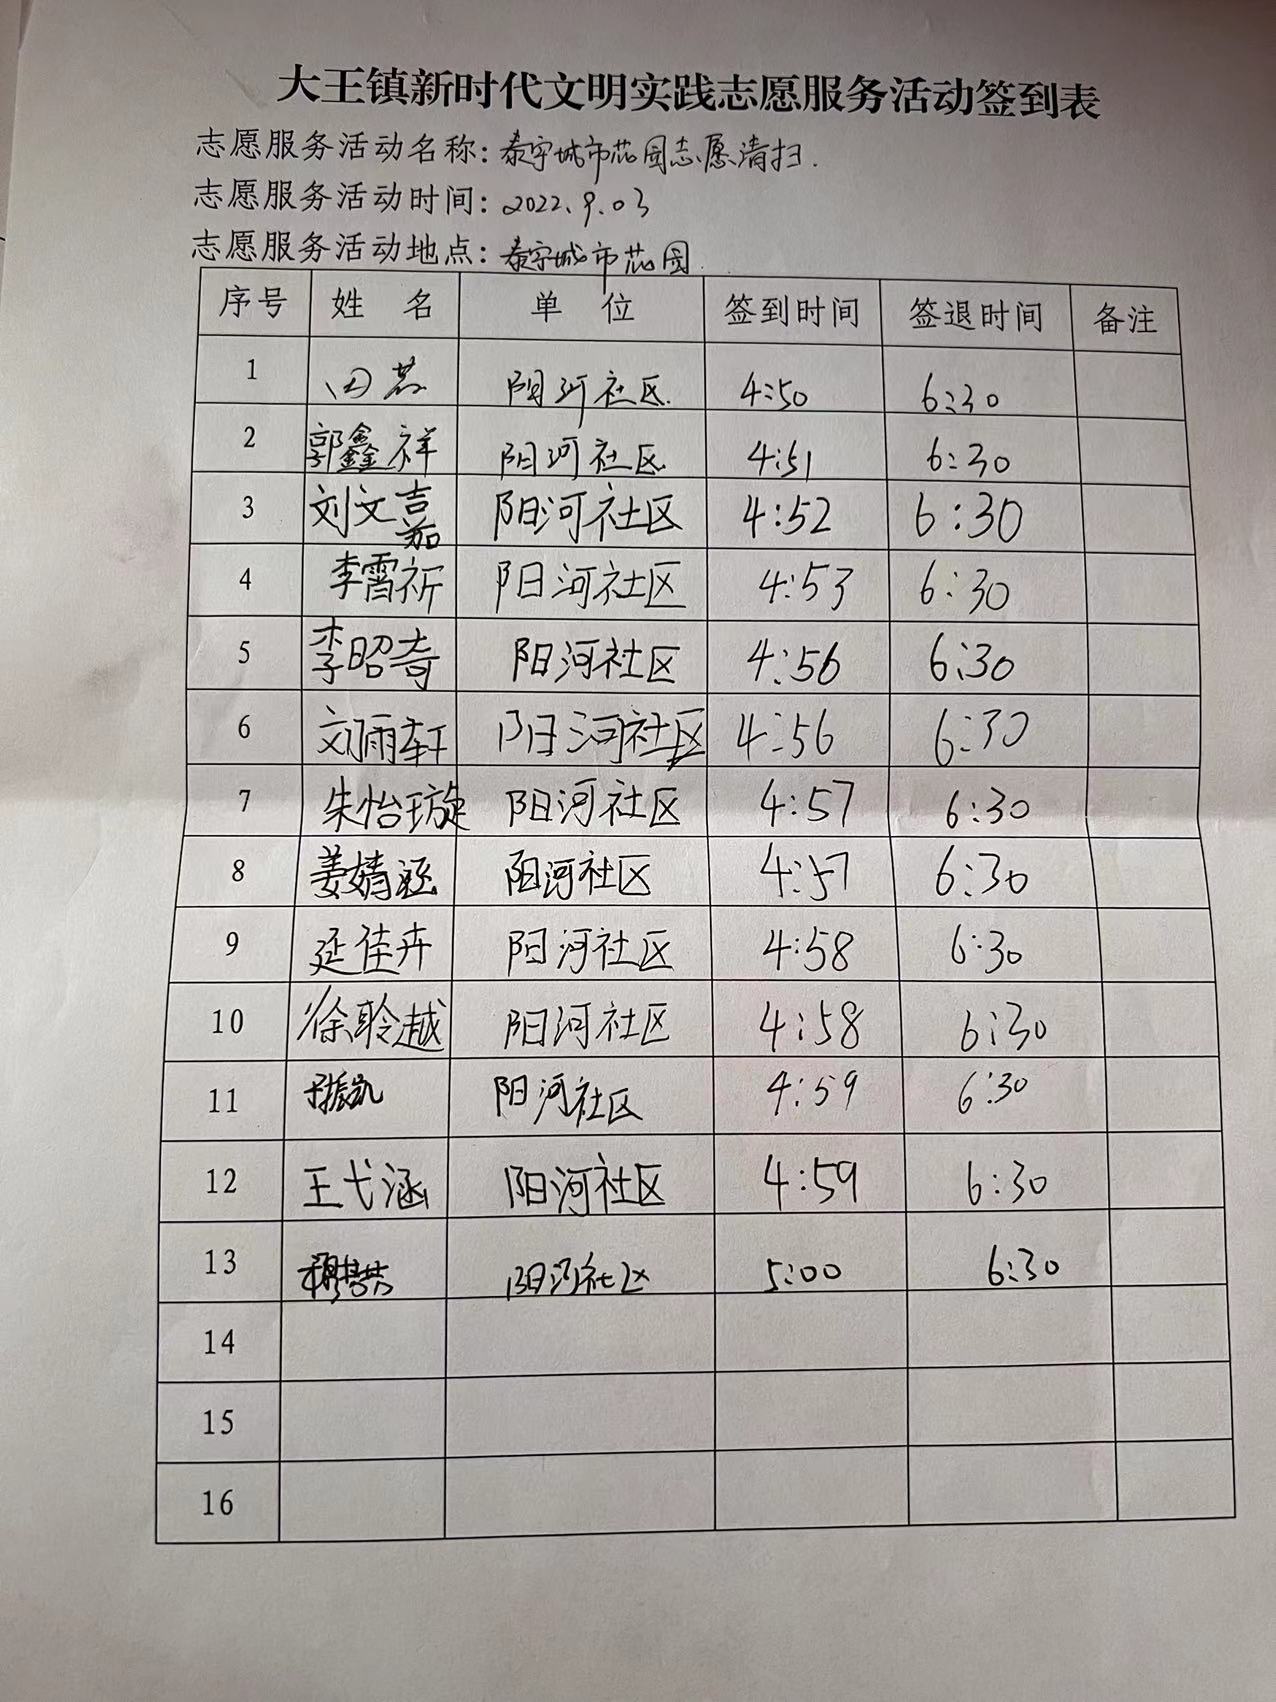 大王镇新时代文明实践志愿服务活动签到表
志愿服务活动名称:泰宇城市花园志愿清扫.
志愿服务活动时间:2022.9.03
志愿服务活动地点:泰宇城市花园.
序号 姓 名 单 位 签到时间 签退时间 备注
1 田 阳河社区. 4:50 6:30
2 郭鑫祥 阳河社区 4:51 6:30
3 刘文嘉 阳河社区 4:52 6:30
4 李霄祈 阳河社区 4:53 6:30
5 李昭奇 阳河社区 4:56 6:30
6 刘雨轩 阳河社区 4:56 6:30
7 朱怡璇 阳河社区 4:57 6:30
8 姜婧涵 阳河社区 4:57 6:30
9 延佳卉 阳河社区 4:58 6:30
10 徐聆越 阳河社区 4:58 6:30
11 阳河社区 4:59 6:30
12 王弋涵 阳河社区 4:59 6:30
13 阳河社区 5:00 6:30
14
15
16